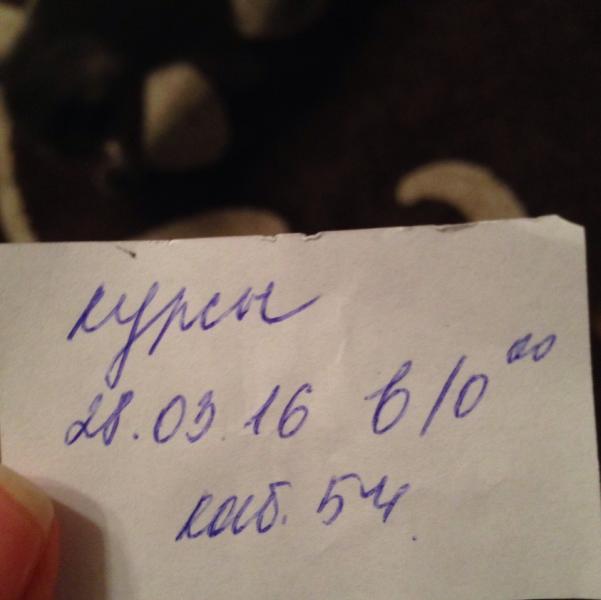 курсы
28.03.16 в 10⁰⁰
каб. 54.